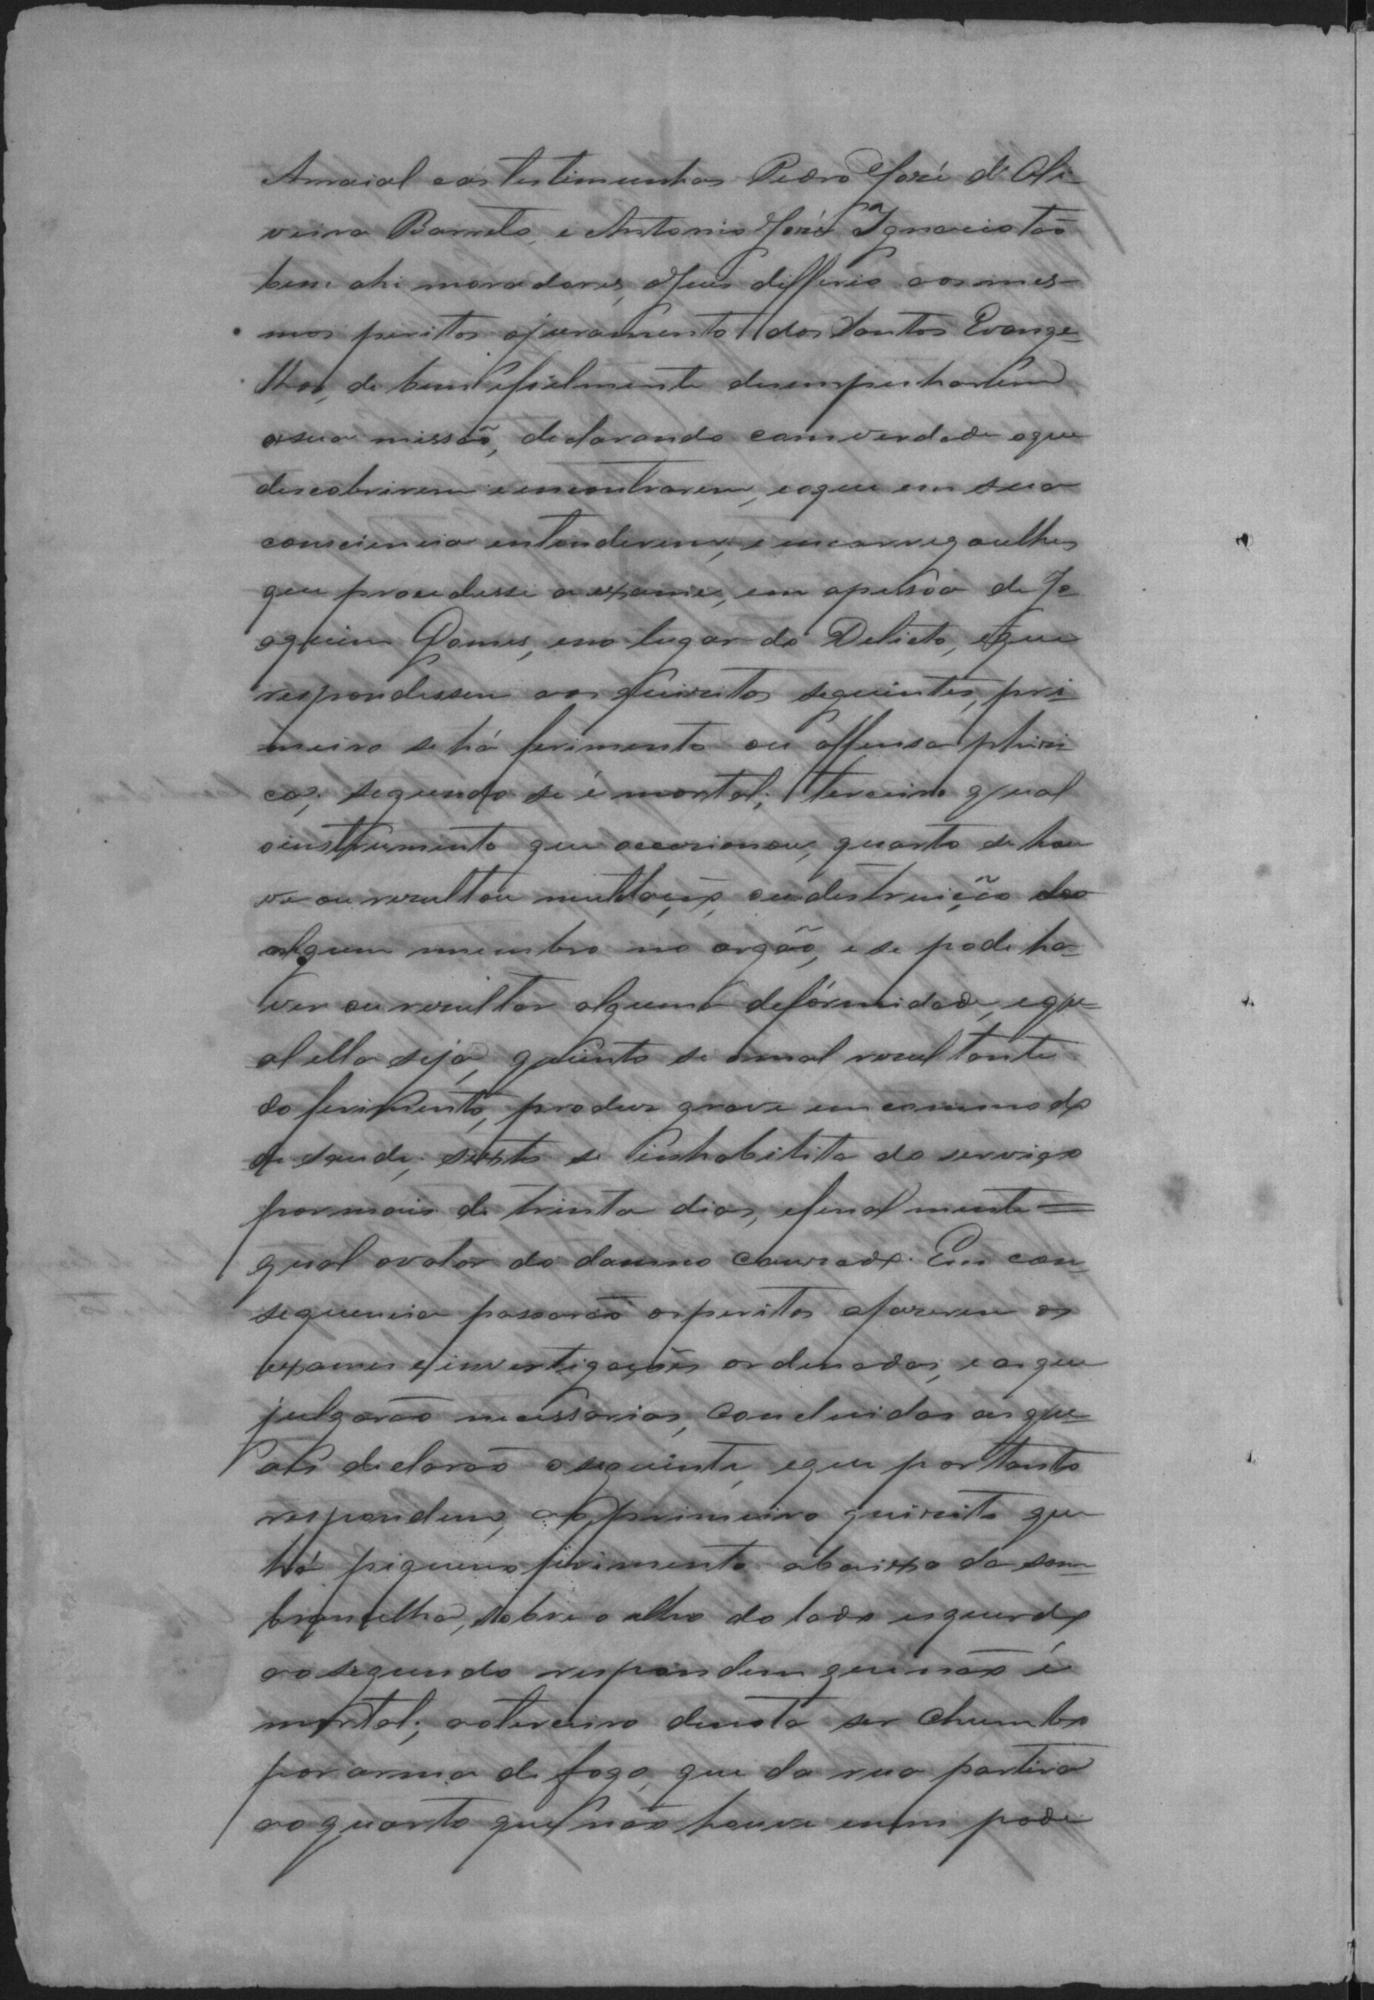 Arraial e as testimunhas Pedro José d'Oli-
veira Barreto, e Antonio José Ignacio tão
bem ahi moradores, o Juis differio aos mes-
mos peritos o juramento dos Santos Evange-
lhos, de bem e fielmente desempenharem
a sua missão, declarando com verdade o que
descobrirem e encontrarem, e o que em sua
consciencia entenderem, e encarregoulhes
que procedesse a exame, em a pessoa de Jo
aquim Gomes, e no lugar do Delicto, e que
respondessem aos quisitos seguintes, pri-
meiro se há ferimento ou offensa phizi
ca; segundo se é mortal; terceiro qual
o instrumento que occasionou, quarto se hou
ve ou resultou mutilação, ou destruição de
algum membro no orgão, e se pode ha-
ver ou resultar alguma defórmidade, e qu-
al ella seja, quinto se o mal resultante
do ferimento, produz grave encommodo
de saude; sexto se inhabilita do serviço
por mais de trinta dias, e final mente =
qual o valor do damno causado. Em con
sequencia passarão os peritos a fazerem os
exames e investigações ordenadas, e as que
julgarão necessarias, concluidas as qu-
ais declarão o seguinte, e que por tanto
respondem, ao primeiro quisito que
há piqueno ferimento abaixo da som-
brancelha, sobre o olho do lado esquerdo
ao segundo respondem que não é
mortal; ao terceiro denota ser chumbo
por arma de fogo, que da rua partira
ao quarto que não houve nem pode